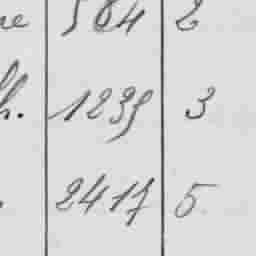 584 2
h. 1239 3
2417 5